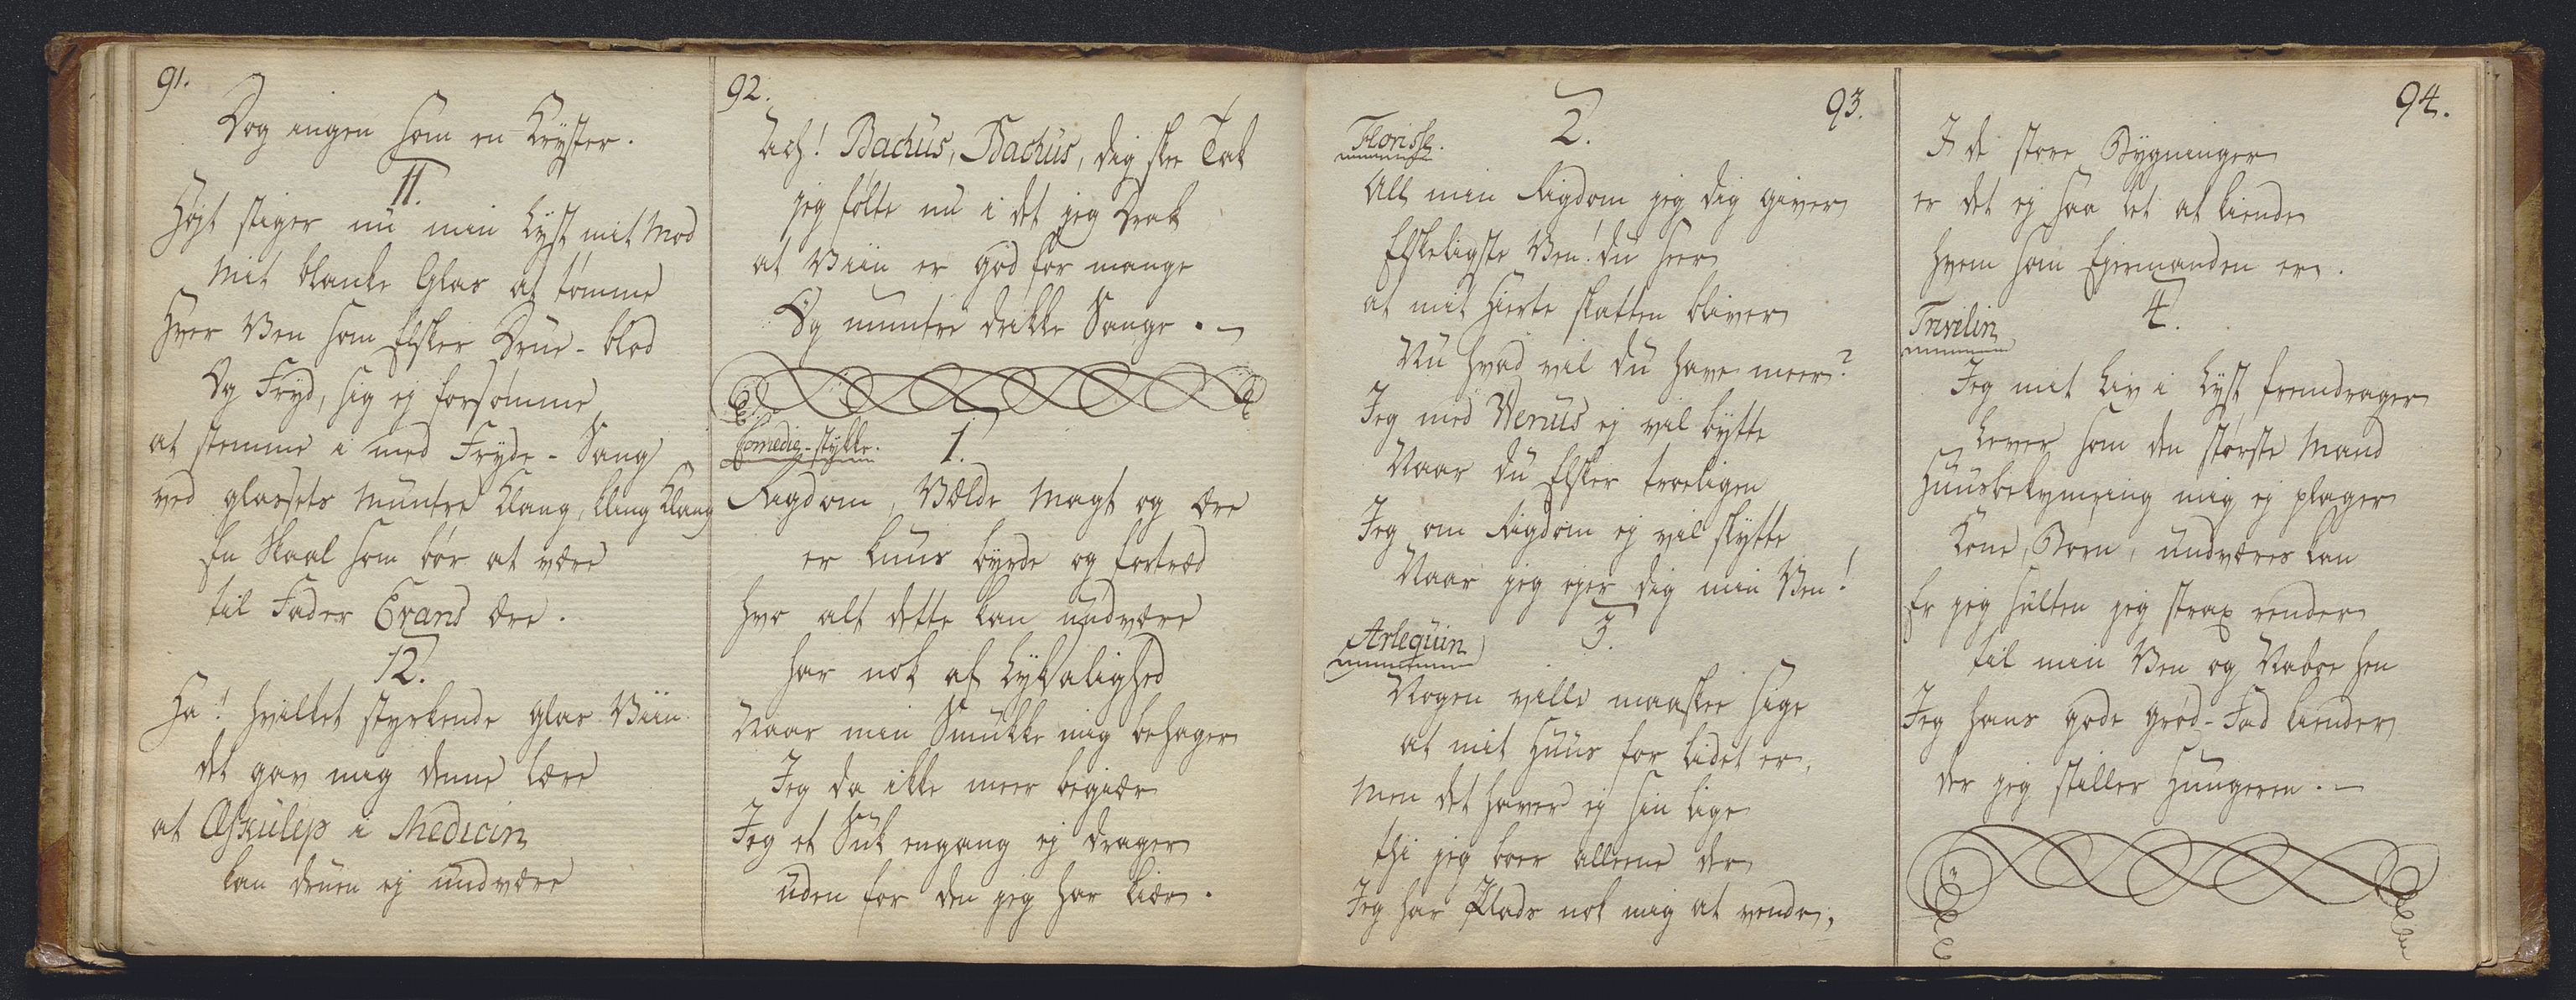 91.
Dog ingen som en Trøster.
11.
Højt stiger nu min Lyst mit Mod
Mit blanke Glas at tømme
Hver Ven som Elsker Drue-blod
Og Fryd, sig ej forsømme
at stemme i med Fryde-Sang
ved glassets muntre Klang, kling Klang
En Skaal som bør at være
til Fader Evans ære.
12.
Ha! hvilket styrkende glas Viin
det gav mig denne lære
at Æskulep i Medicin
kan druen ej undvære
92.
Ach! Bachus, Bachus, dig skee Tak
jeg følte nu i det jeg Drak
at Viin er god for mange
Og muntre drikke Sange. -
Comedie-stykke.
1.
Rigdom, Vælde Magt og ære
er kuns byrde og fortræd
hvo alt dette kan undvære
har nok af Lyksalighed
Naar min Smukke mig behager
Jeg da ikke meer begiær
Jeg et Suk engang ej drager
uden for den jeg har kiær.
93.
2.
Florisse.
All min Rigdom jeg dig giver
Elskeligste Ven! du seer
at mit Hierte skatten bliver
Nu hvad vil du have meer?
Jeg med Venus ej vil bytte
Naar du Elsker troeligen
Jeg om Rigdom ej vil skytte
Naar jeg ejer dig min Ven!
3.
Arlequin
Nogen ville maaskee sige
at mit Huus for lidet er,
Men det haver ej sin lige
thi jeg boer alleene der
Jeg har Plads nok mig at vende,
94.
I de store Bygninger
er det ej saa let at kiende
hvem som Ejermanden er.
4.
Trivelin
Jeg mit Liv i Lyst fremdrager
Lever som den største Mand
Huusbekymring mig ej plager
Kone, Børn, undværes kan
Er jeg sulten jeg strax render
til min Ven og Naboe hen
Jeg hans gode grød-Fad kiender
der jeg stiller Hungeren. -